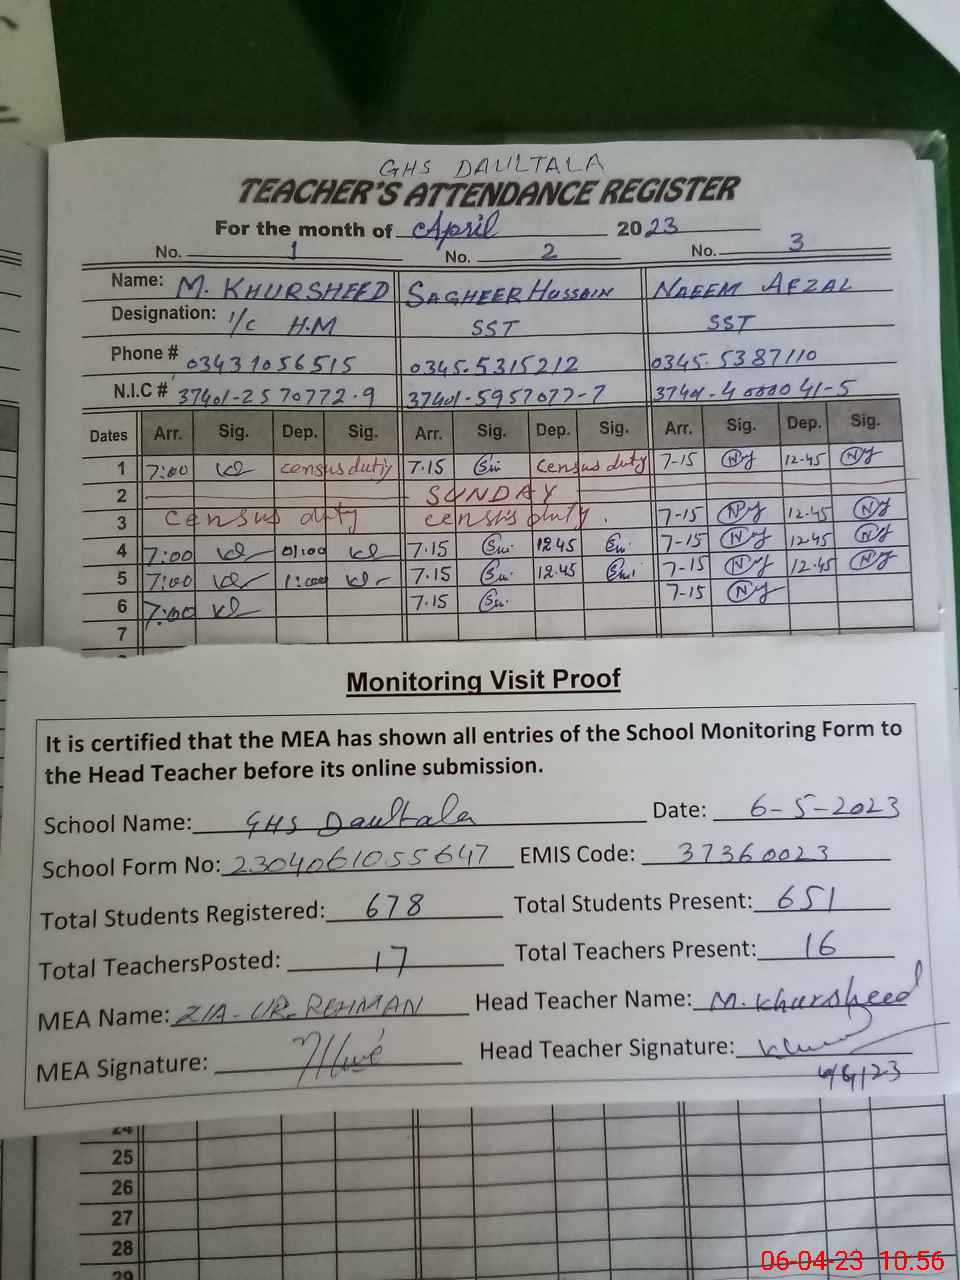 GHS DAULTALA
TEACHER'S ATTENDANCE REGISTER
For the month of April 2023
No. 1 No. 2 No. 3
Name: M. KHURSHEED SAGHEER HUSSAIN NAEEM AFZAL
Designation: I/C H.M SST SST
Phone # 03431056515 0345-5315212 0345-5387110
N.I.C # 37401-2570772-9 37401-5957077-7 37401-4000041-5
Dates Arr. Sig. Dep. Sig. Arr. Sig. Dep. Sig. Arr. Sig. Dep. Sig.
1 7:00 census duty 7.15 census duty 7-15 12-45
2 SUNDAY
3 census duty census duty. 7-15 12.45
4 7:00 01:00 7.15 12.45 7-15 12.45
5 7:00 1:00 7.15 12.45 7-15 12.45
6 7:00 7.15 7-15
7
Monitoring Visit Proof
It is certified that the MEA has shown all entries of the School Monitoring Form to
the Head Teacher before its online submission.
School Name: GHS Daultala Date: 6-5-2023
School Form No: 2304061055647 EMIS Code: 37360023
Total Students Registered: 678 Total Students Present: 651
Total TeachersPosted: 17 Total Teachers Present: 16
MEA Name: ZIA-UR-REHMAN Head Teacher Name: M. Khursheed
MEA Signature: Head Teacher Signature:
24
25
26
27
28
29
06-04-23 10.56